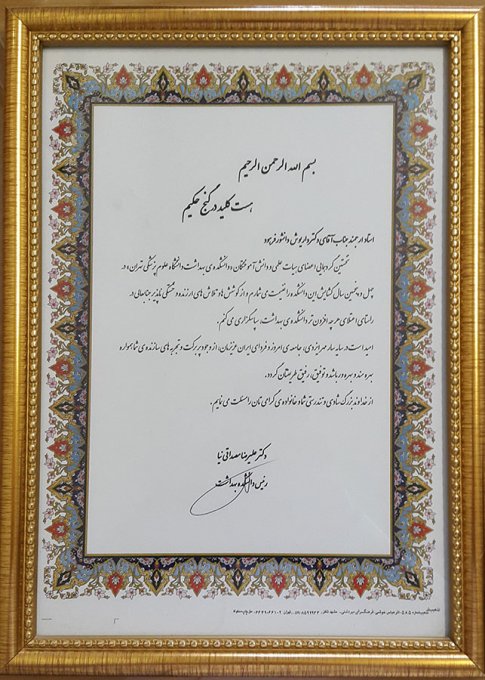 بسم الله الرحمن الرحیم
هست کلید در گنج حکیم
استاد ارجمند جناب آقای دکتر داریوش دانشور فرهود
نخستین گردهمایی اعضای هیات علمی و دانش آموختگان دانشکده ی بهداشت دانشگاه علوم پزشکی تهران در
چهل و پنجمین سال گشایش این دانشکده را غنیمت می شمارم و از کوشش ها و تلاش های ارزنده و خستگی ناپذیر جنابعالی در
راستای اعتلای هر چه افزون تر دانشکده ی بهداشت، سپاسگزاری می کنم.
امید است در سایه سار مهر ایزدی، جامعه ی امروز و فردای ایران عزیزمان، از وجود پر برکت و تجربه های سازنده ی شما همواره
بهره مند و بهره ور باشد و توفیق، رفیق طریقتان گردد.
از خداوند بزرگ شادی و تندرستی شما و خانواده ی گرامی تان را مسئلت می نمایم.
دکتر علیرضا مصداقی نیا
رئیس دانشکده بهداشت